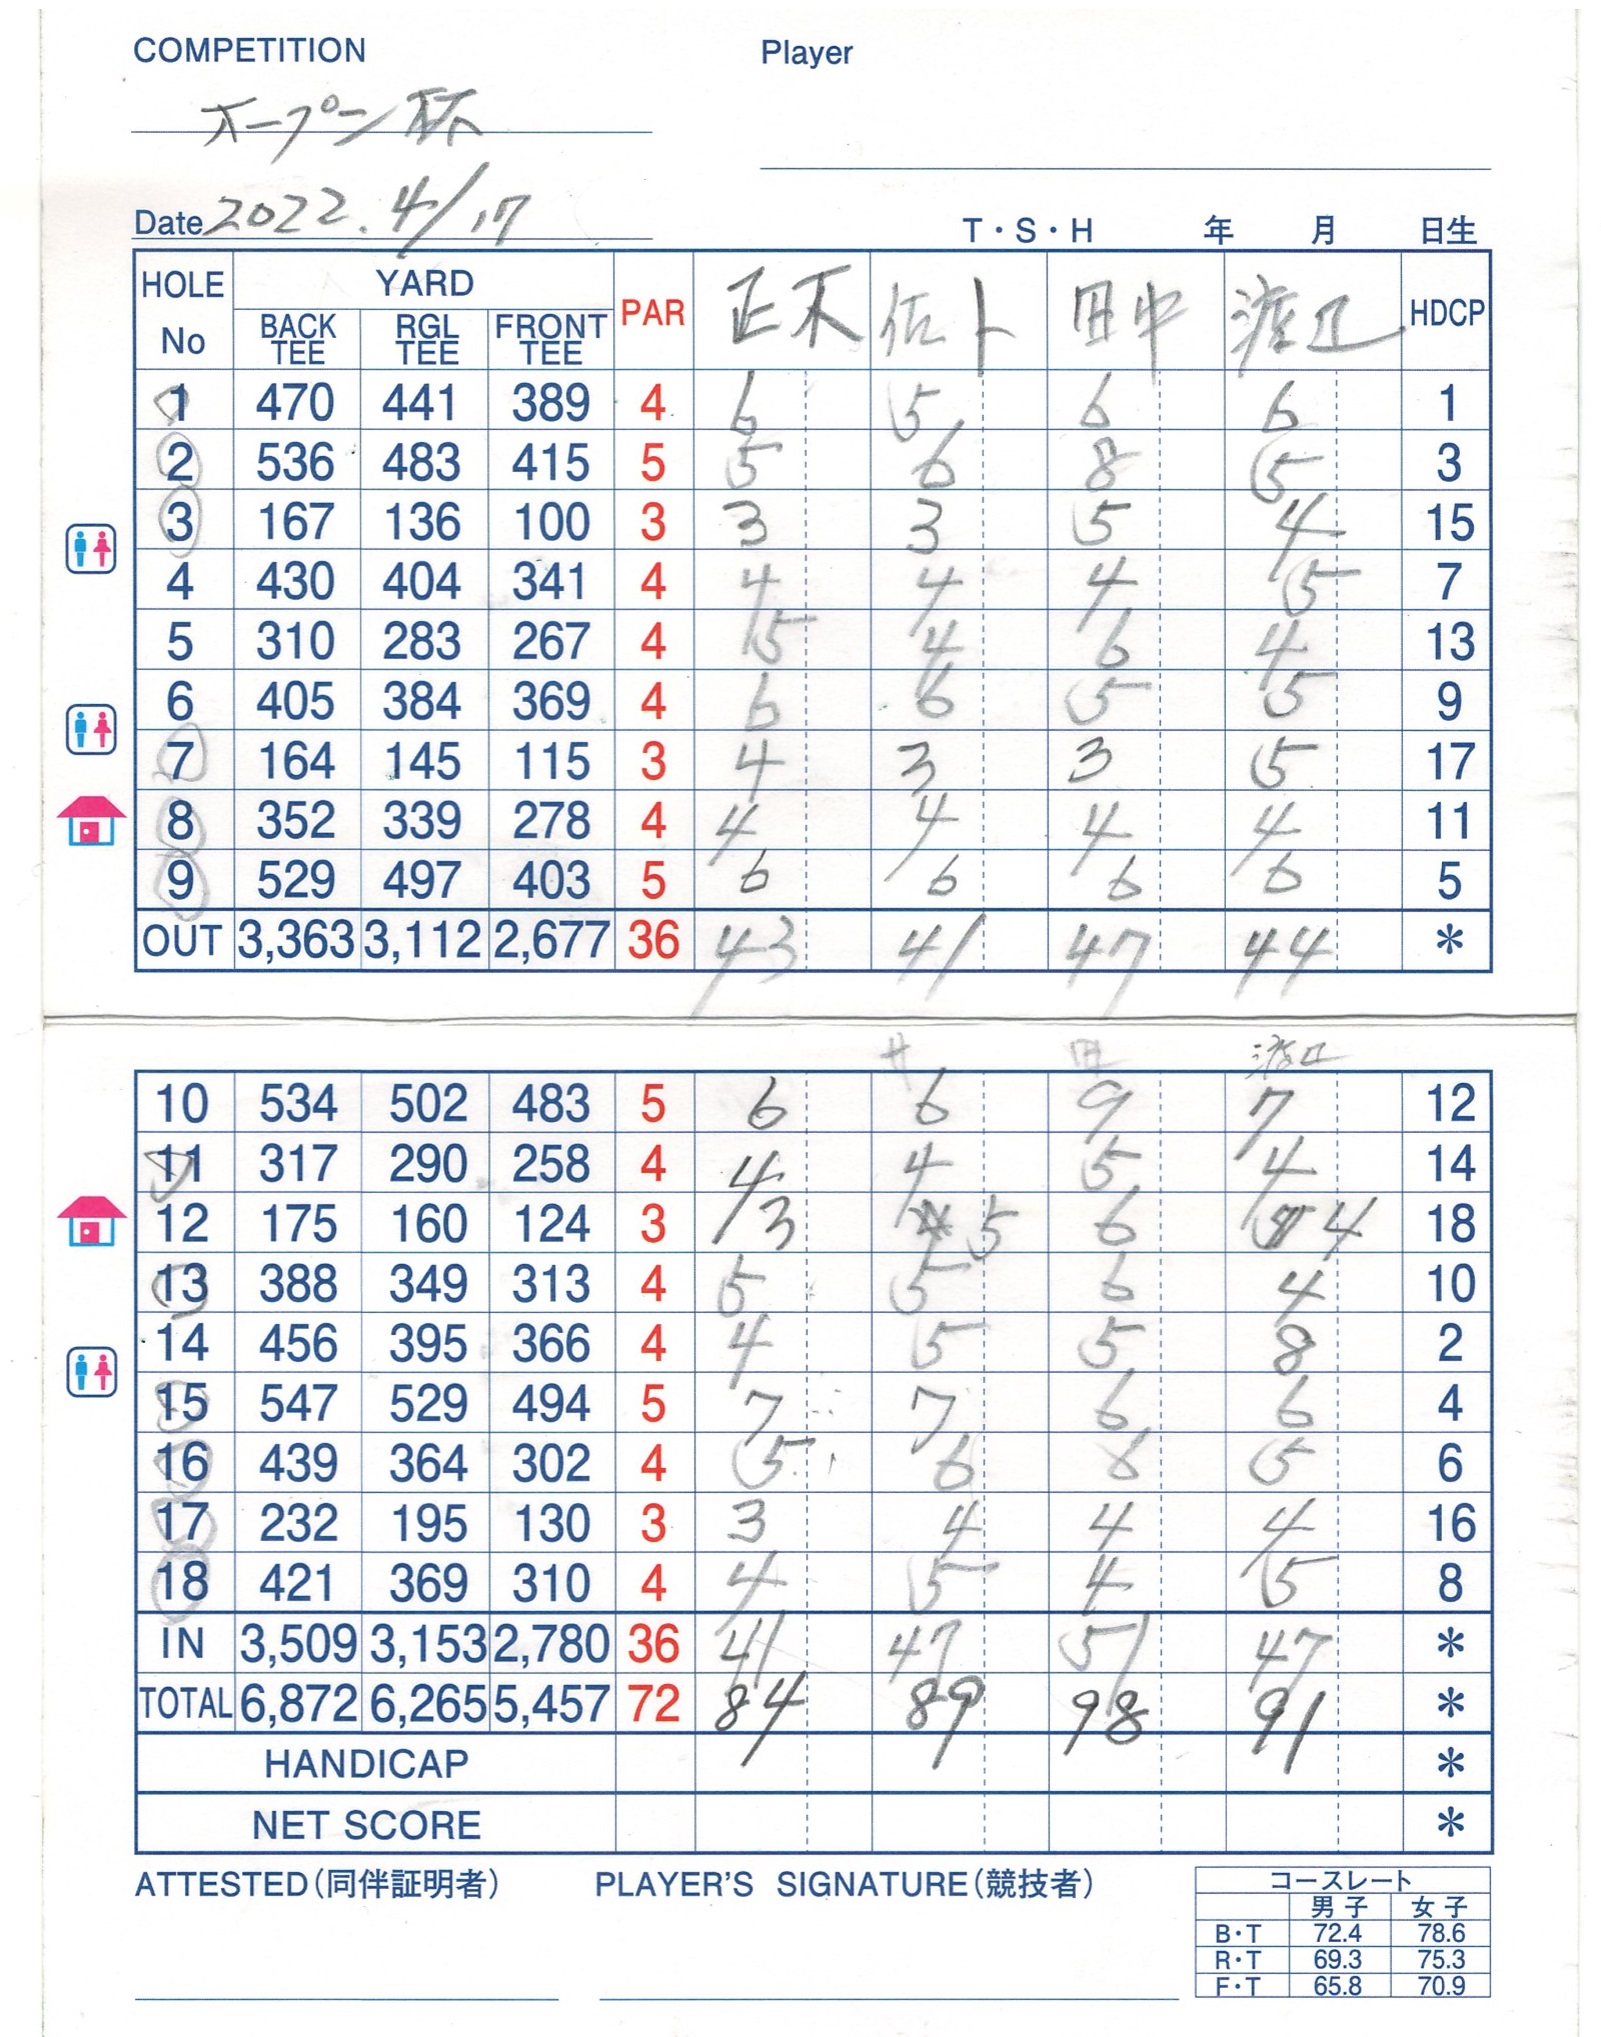 COMPETITION Player
オープン杯
Date 2022.4/17 T・S・H 年 月 日生
HOLE No YARD BACK TEE RGL TEE FRONT TEE PAR 正木 佐ト 田中 渡辺 HDCP
1 470 441 389 4 6 5 6 6 1
2 536 483 415 5 5 6 8 5 3
3 167 136 100 3 3 3 5 4 15
4 430 404 341 4 4 4 4 5 7
5 310 283 267 4 5 4 6 4 13
6 405 384 369 4 6 6 5 5 9
7 164 145 115 3 4 3 3 5 17
8 352 339 278 4 4 4 4 4 11
9 529 497 403 5 6 6 6 6 5
OUT 3,363 3,112 2,677 36 43 41 47 44 *
サ 田 渡辺
10 534 502 483 5 6 6 9 7 12
11 317 290 258 4 4 4 5 4 14
12 175 160 124 3 3 5 6 4 18
13 388 349 313 4 5 5 6 4 10
14 456 395 366 4 4 5 5 8 2
15 547 529 494 5 7 7 6 6 4
16 439 364 302 4 5 6 6 5 6
17 232 195 130 3 3 4 4 4 16
18 421 369 310 4 4 5 4 5 8
IN 3,509 3,153 2,780 36 41 47 51 47 *
TOTAL 6,872 6,265 5,457 72 84 89 98 91 *
HANDICAP *
NET SCORE *
ATTESTED(同伴証明者) PLAYER'S SIGNATURE(競技者)
コースレート
男子 女子
B・T 72.4 78.6
R・T 69.3 75.3
F・T 65.8 70.9